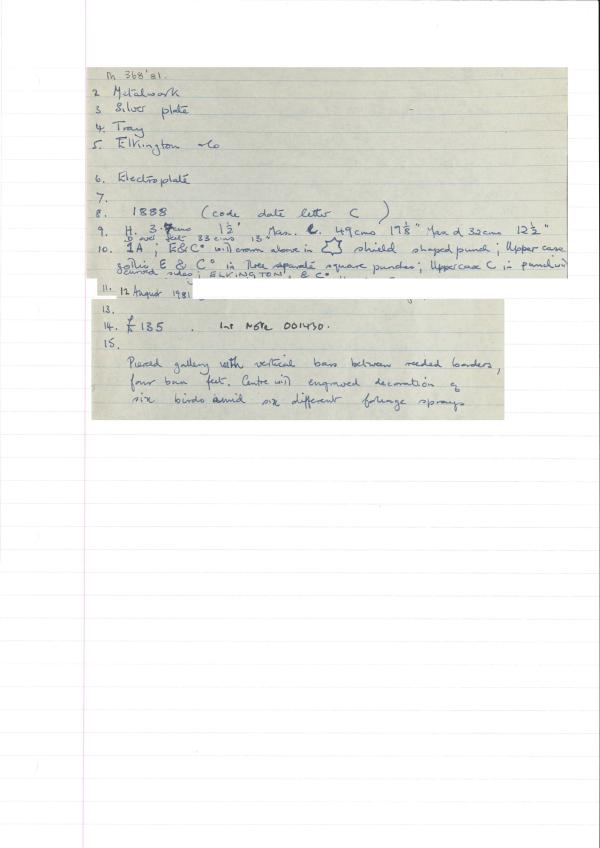 M 368'81.
2 Metalwork
3 Silver plate
4. Tray
5. Elkington & Co
6. Electroplate
7.
8. 1888 (code date letter C )
9. H. 3. cms 1½" Max. L. 49cms 19⅛" Max d 32cms 12½"
D over feet 33 cms 13"
10. 1A ; E&Co with crown above in shield shaped punch ; Uppercase
gothic E & Co in three separate square punches ; Uppercase C in panel with
curved sides ; ELKINGTON & Co
11. 12 August 1981
13.
14. £135 . Int Note 001430.
15.
Pierced gallery with vertical bars between reeded borders,
four bun feet. Centre with engraved decoration of
six birds amid six different foliage sprays